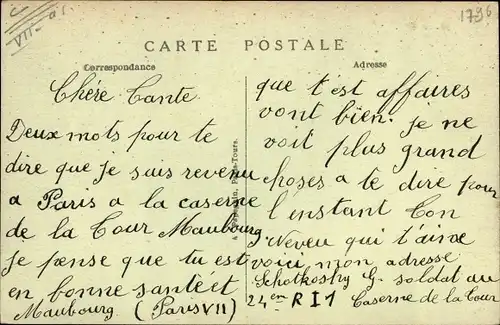 1796
VII-
CARTE POSTALE
Correspondance
Adresse
Chére Tante
Deux mots pour te
dire que je suis revenu
a Paris a la caserne
de la Tour Maubourg
je pense que tu est
en bonne santé et
que t'est affaires
vont bien. je ne
voit plus grand
choses a te dire pour
l'instant Ton
Neveu qui t'aime
voici mon adresse
G. soldat au
24em R I 1
Caserne de la Tour
Maubourg (Paris VII)